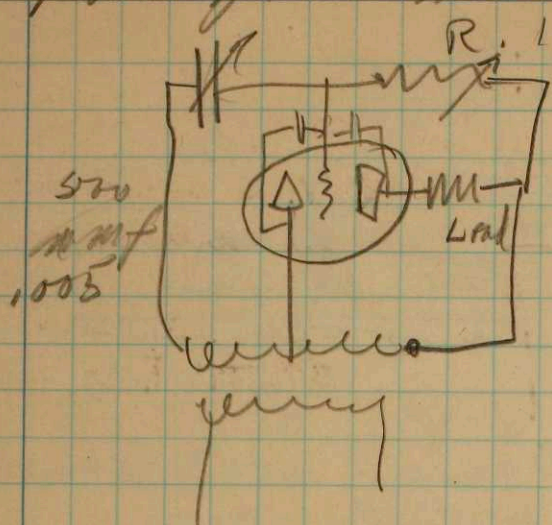 R.
500
mmf
.005
Load